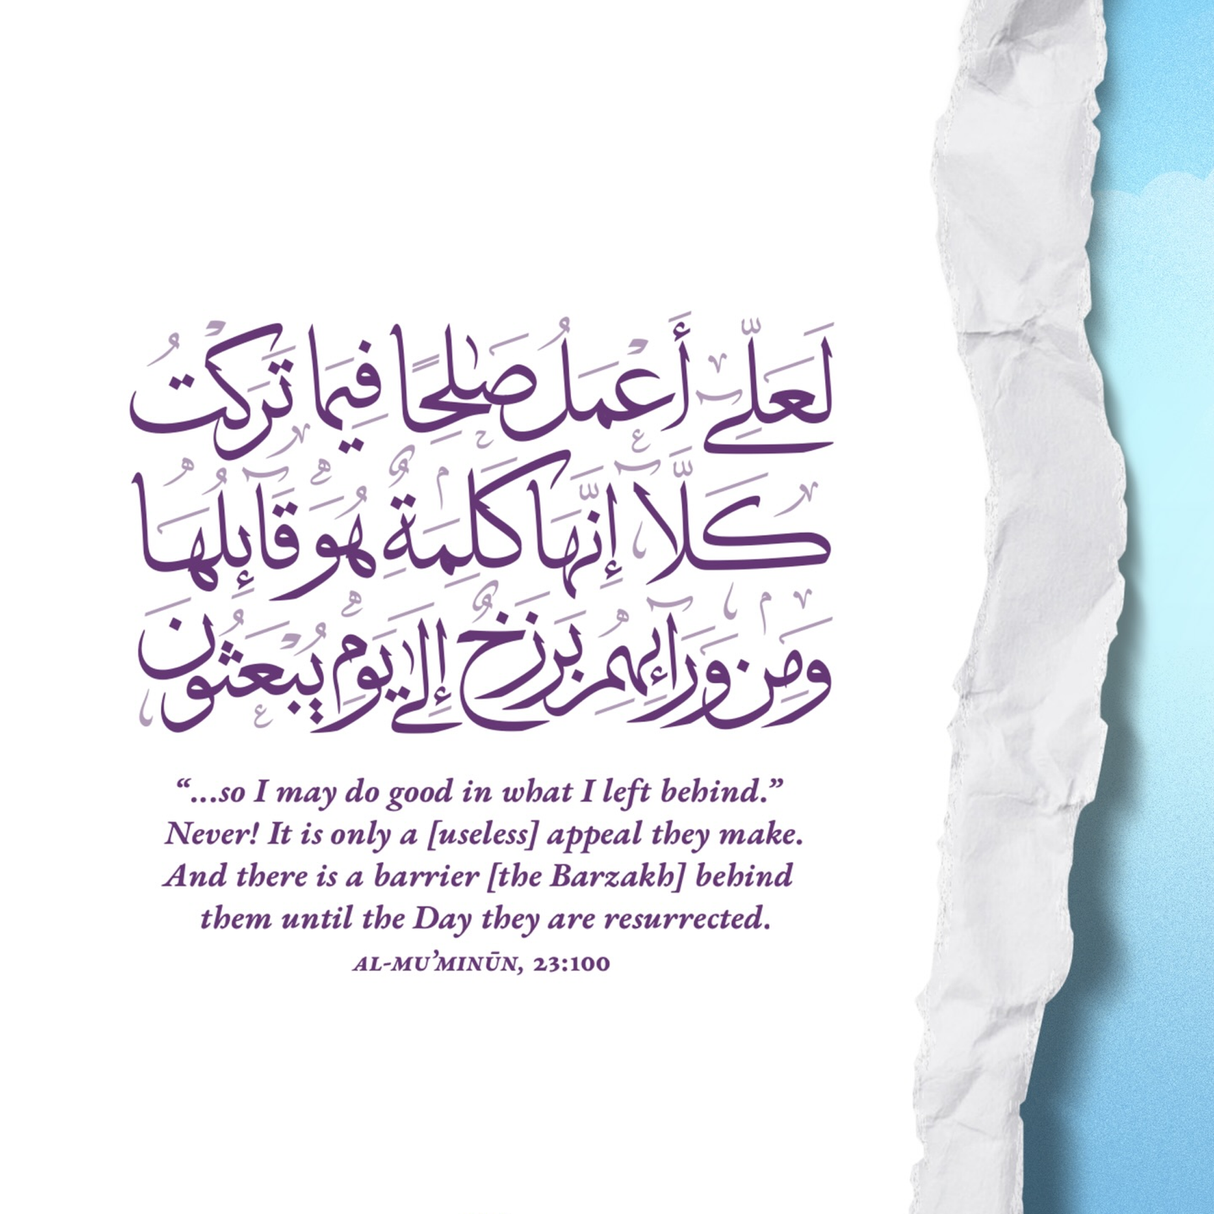 لَعَلِّي أَعْمَلُ صَٰلِحًا فِيمَا تَرَكْتُ
كَلَّا إِنَّهَا كَلِمَةٌ هُوَ قَائِلُهَا
وَمِن وَرَائِهِم بَرْزَخٌ إِلَىٰ يَوْمِ يُبْعَثُونَ
“...so I may do good in what I left behind.”
Never! It is only a [useless] appeal they make.
And there is a barrier [the Barzakh] behind
them until the Day they are resurrected.
AL-MU’MINŪN, 23:100